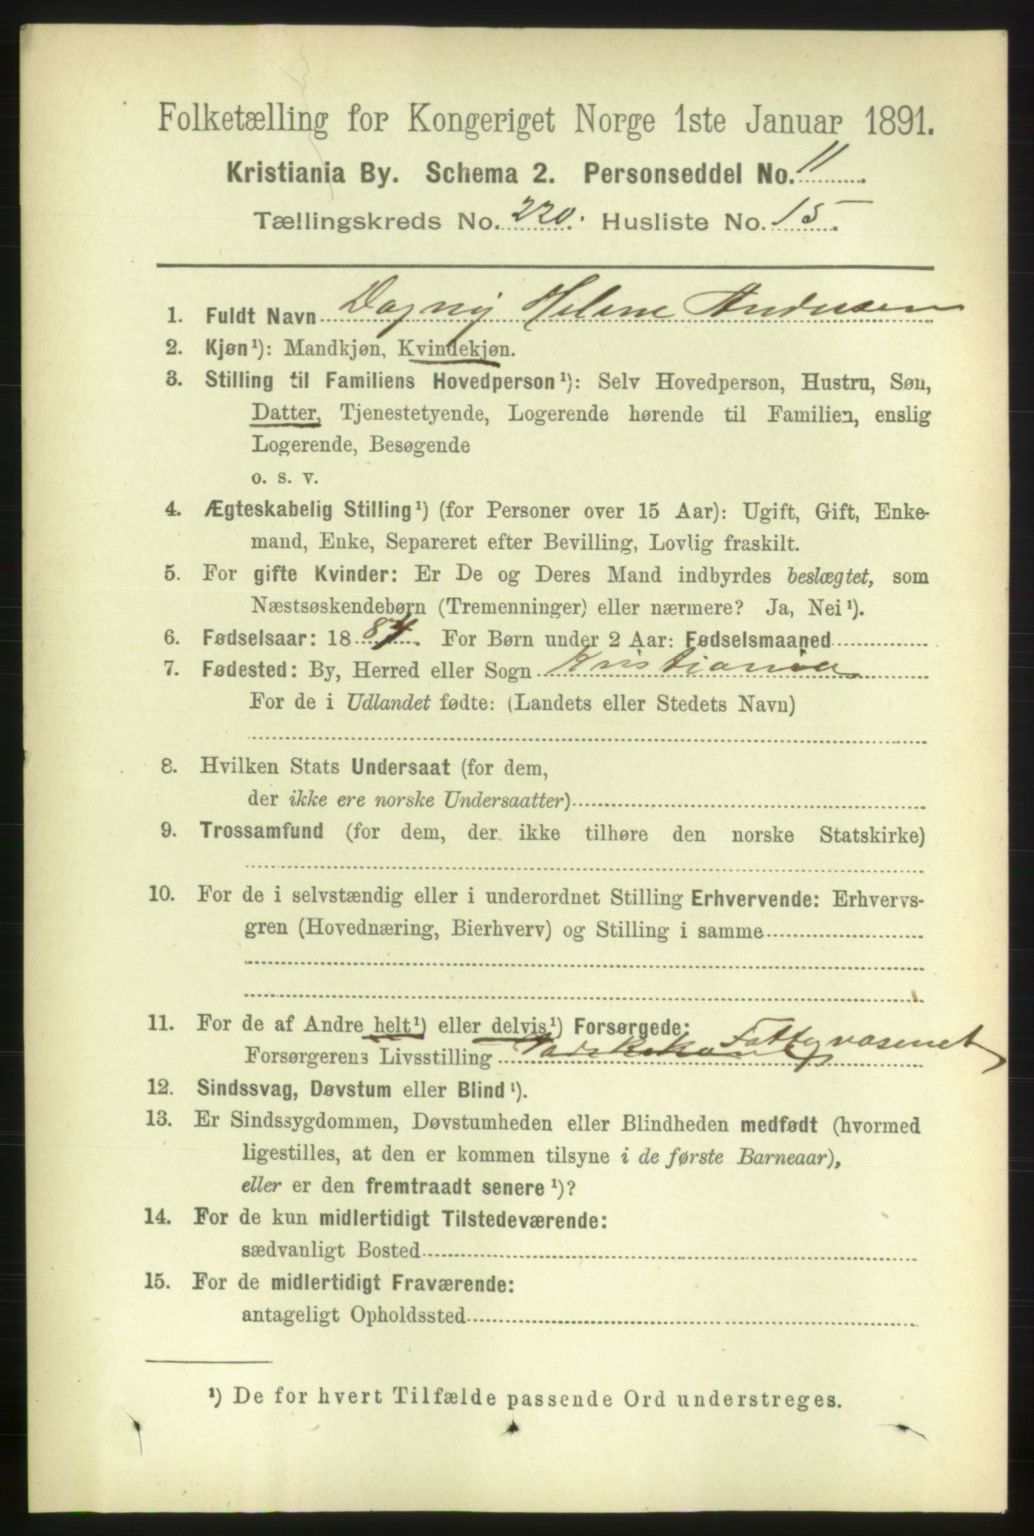 Folketælling for Kongeriget Norge 1ste Januar 1891.
Kristiania By. Schema 2. Personseddel No. 11
Tællingskreds No. 220. Husliste No. 15
1. Fuldt Navn Dagny Helene Andersen
2. Kjøn¹): Mandkjøn, Kvindekjøn.
3. Stilling til Familiens Hovedperson¹): Selv Hovedperson, Hustru, Søn,
Datter, Tjenestetyende, Logerende hørende til Familien, enslig
Logerende, Besøgende
o. s. v.
4. Ægteskabelig Stilling¹) (for Personer over 15 Aar): Ugift, Gift, Enke-
mand, Enke, Separeret efter Bevilling, Lovlig fraskilt.
5. For gifte Kvinder: Er De og Deres Mand indbyrdes beslægtet, som
Næstsøskendebørn (Tremenninger) eller nærmere? Ja, Nei¹).
6. Fødselsaar: 1884. For Børn under 2 Aar: Fødselsmaaned
7. Fødested: By, Herred eller Sogn Kristiania
For de i Udlandet fødte: (Landets eller Stedets Navn)
8. Hvilken Stats Undersaat (for dem,
der ikke ere norske Undersaatter)
9. Trossamfund (for dem, der ikke tilhøre den norske Statskirke)
10. For de i selvstændig eller i underordnet Stilling Erhvervende: Erhvervs-
gren (Hovednæring, Bierhverv) og Stilling i samme
11. For de af Andre helt¹) eller delvis¹) Forsørgede:
Forsørgerens Livsstilling Fattigvæsenet
12. Sindssvag, Døvstum eller Blind¹).
13. Er Sindssygdommen, Døvstumheden eller Blindheden medfødt (hvormed
ligestilles, at den er kommen tilsyne i de første Barneaar),
eller er den fremtraadt senere¹)?
14. For de kun midlertidigt Tilstedeværende:
sædvanligt Bosted
15. For de midlertidigt Fraværende:
antageligt Opholdssted
¹) De for hvert Tilfælde passende Ord understreges.